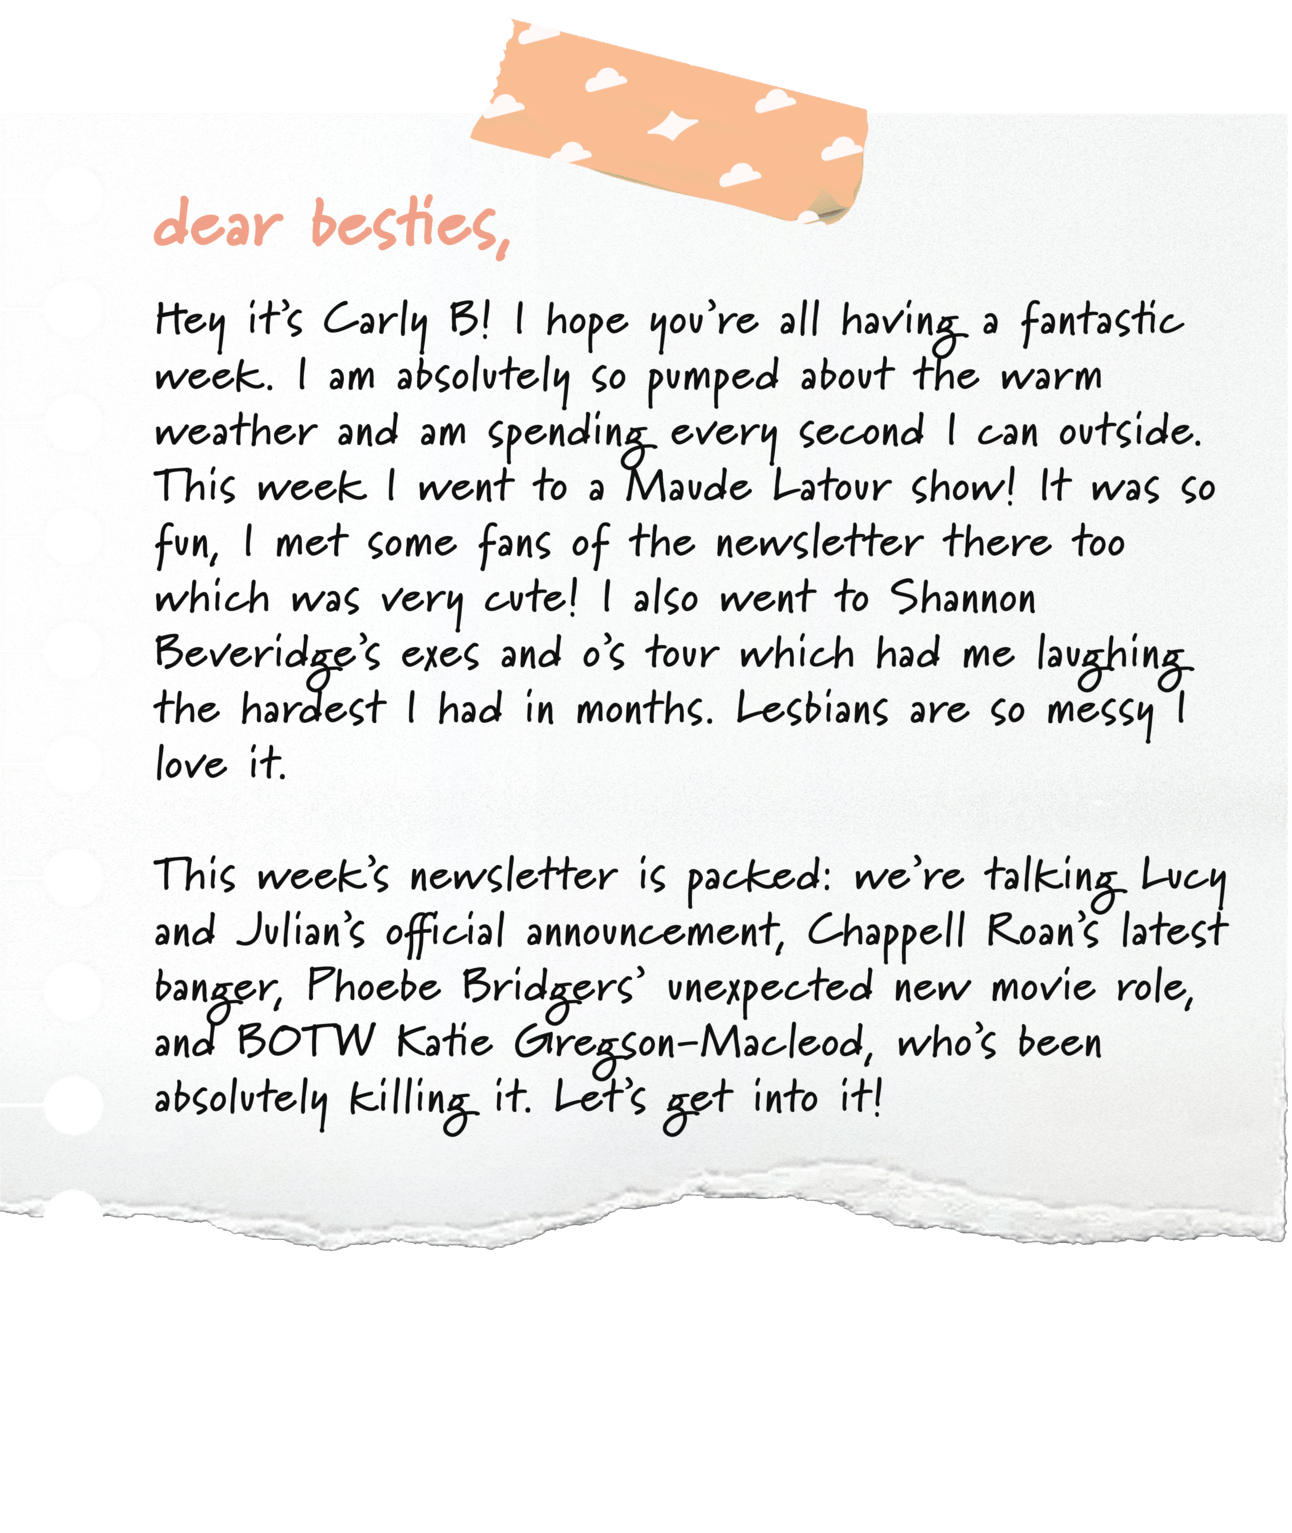 dear besties,
Hey it's Carly B! I hope you're all having a fantastic
week. I am absolutely so pumped about the warm
weather and am spending every second I can outside.
This week I went to a Maude Latour show! It was so
fun, I met some fans of the newsletter there too
which was very cute! I also went to Shannon
Beveridge's exes and o's tour which had me laughing
the hardest I had in months. Lesbians are so messy I
love it.
This week's newsletter is packed: we're talking Lucy
and Julian's official announcement, Chappell Roan's latest
banger, Phoebe Bridgers' unexpected new movie role,
and BOTW Katie Gregson-Macleod, who's been
absolutely killing it. Let's get into it!